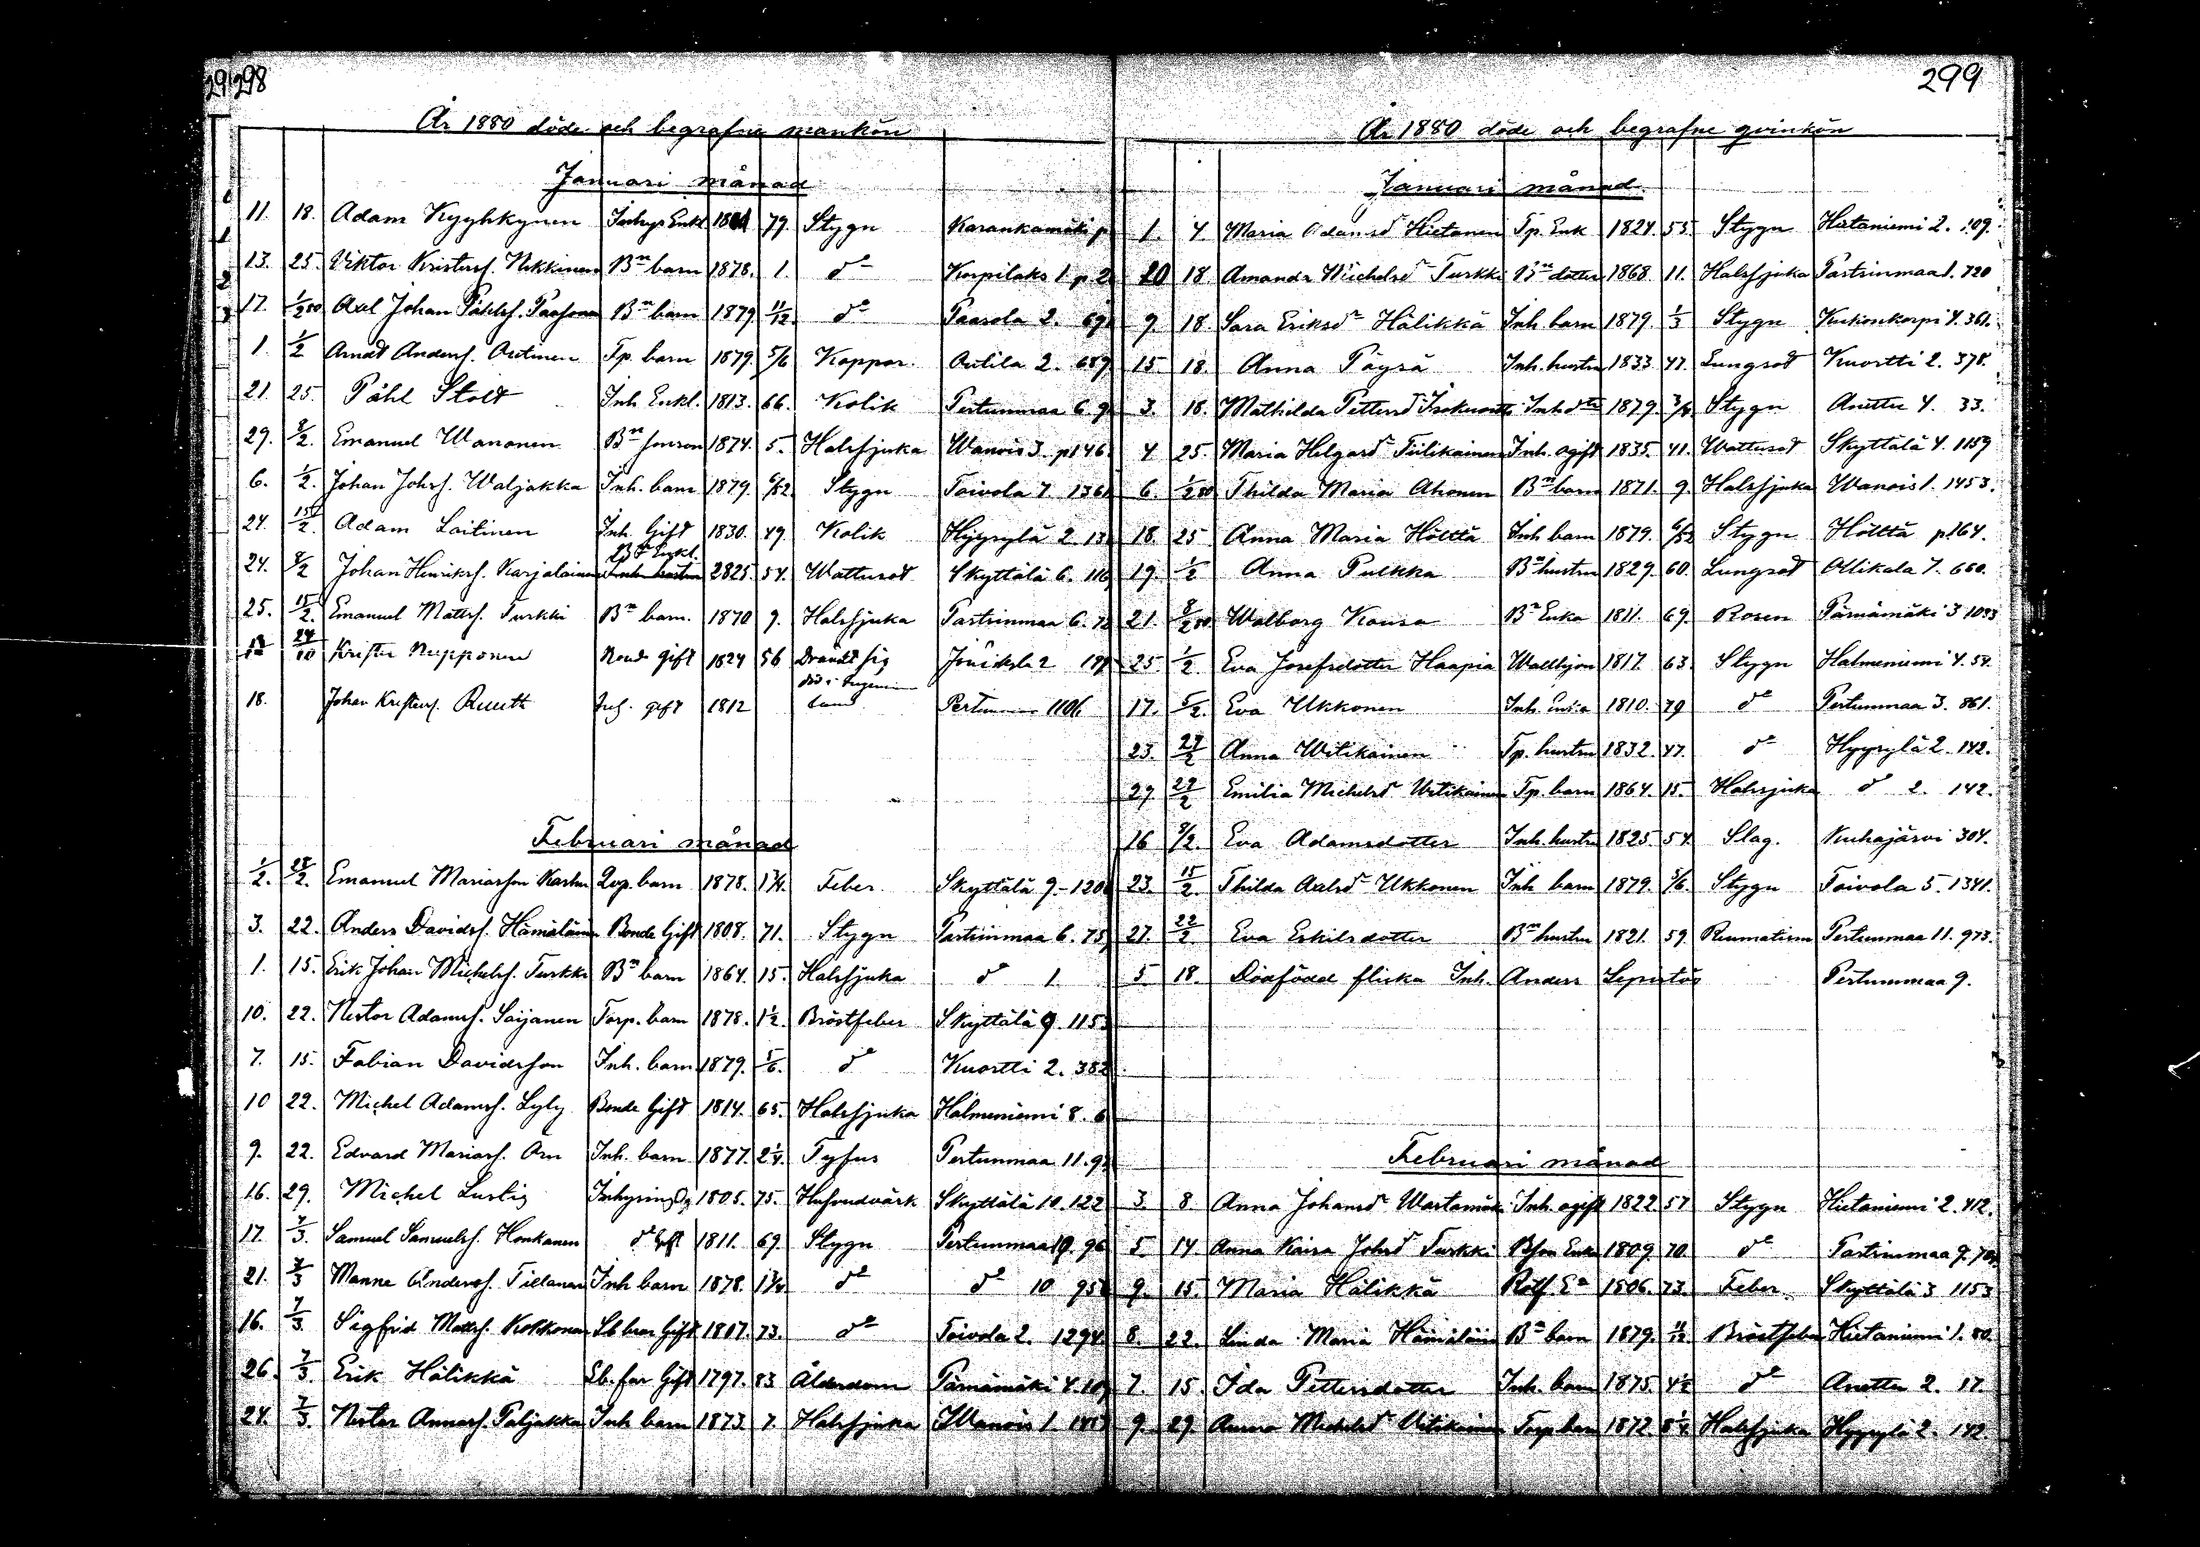 298
År 1880 döde och begrafne mankön
Januari månad
11. 18. Adam Kyyhkynen Inhys Enkl 79. Stygn Karankamäki p
13. 25. Viktor Kristersf. Nikkinen Bn barn 1878. 1. do Korpilaks 1. p. 2
17. 1/2 80 Axel Johan Påhlsf. Paasonen Bn barn 1879 11/12. do Paasola 2. 69
1. 1/2 Arndt Andersf. Autinen Tp. barn 1879. 5/6 Koppor. Autila 2. 659
21. 25. Påhl Stolt Inh Enkl. 1813. 66. Kolik Pertunmaa 6. 9
29. 8/2. Emanuel Wanonen Bn sonson 1874. 5. Halssjuka Wanois 3. p146
6. 1/2. Johan Johsf. Waljakka Inh. barn 1879. 6/52 Stygn Toivola 7 136
24. 15/2 Adam Laitinen Inh. Gift 1830. 49. Kolik Hyyrylä 2. 13
24. 8/2 Johan Henriksf. Karjalainen Bd Enkl. 2825. 54. Wattusot Skyttälä 6. 116
25. 15/2. Emanuel Mattsf. Turkki Bn barn. 1870 9. Halssjuka Partsinmaa 6. 72
24/10 Krister Nupponen Bonde gift 1824 56 Dränkt sig Joutsela 2
18. Johan Kristersf. Ruuth Inh. gift 1812 död i Ingermanland Pertunmaa 1106
Februari månad
1/2. 28/2. Emanuel Mariasson Qvp. barn 1878. 1 3/4. Feber Skyttälä 9. 120
3. 22. Anders Davidsf. Hämäläinen Bonde Gift 1808. 71. Stygn Partsinmaa 6. 75
1. 15. Erik Johan Michelsf. Turkki Bn barn 1864. 15. Halssjuka do 1.
10. 22. Nestor Adamsf. Saijanen Torp. barn 1878. 1 1/2 Bröstfeber Skyttälä 9. 115
7. 15. Fabian Davidsson Inh. barn 1879. 5/6. do Kuortti 2. 382
10 22. Michel Adamsf. Lyly Bonde Gift 1814. 65. Halssjuka Halmeniemi 8. 6
9. 22. Edvard Mariasf. Orn Inh. barn 1877. 2 1/4. Tyfus Pertunmaa 11. 9
16. 29. Michel Lustig Inhysing 1805. 75. Hufvudvärk Skyttälä 10. 122
17. 7/3. Samuel Samuelsf. Honkanen do Gift 1811. 69. Stygn Pertunmaa 19. 96
21. 7/3 Manne Andersf. Tillanen Inh barn 1878. 1 3/4. do do 10 95
16. 7/3. Sigfrid Mattsf. Kokkonen Sb bror Gift 1807. 73. do Toivola 2. 1294.
26. 7/3. Erik Hälikkä Sb. far Gift 1797. 83 Ålderdom Pärnämäki 4. 10
24. 7/3. Nestor Annasf. Paljakka Inh barn 1873. 7. Halssjuka Wanois 1. 145
299
År 1880 döde och begrafne qvinkön
Januari månad
1. 4. Maria Adamsd Hietanen Tp. Enk 1824. 55. Stygn Hietaniemi 2. 109.
20 18. Amanda Michelsdr Turkki Bn dotter 1868. 11. Halssjuka Partsinmaa 1. 720
9. 18. Sara Eriksdr Hälikkä Inh. barn 1879. 1/3 Stygn Kukonkorpi 4. 361.
15 18. Anna Pöysä Inh. hustru 1833. 47. Lungsot Kuortti 2. 378.
3. 18. Mathilda Pettersd Isokuortti Inh. dtr 1879. 3/4 Stygn Anettu 4. 33.
4 25. Maria Helgasdr Tiilikainen Inh. ogift 1835. 41. Wattusot Skyttälä 4. 1159
6. 1/2 80 Thilda Maria Ahonen Bn barn 1871. 9. Halssjuka Wanois 1. 1453.
18. 25 Anna Maria Hölttä Inh barn 1879. 6/52 Stygn Hölttä p164.
19. 1/2 Anna Pulkka Bn hustru 1829. 60. Lungsot Ollikala 7. 660.
21. 8/2 80. Walborg Kousa Bn Enka 1811. 69. Rosen Pärnämäki 3 1093
25. 1/2 Eva Josefsdotter Haapia Wallhjon 1817. 63. Stygn Halmeniemi 4. 54.
17. 5/2. Eva Ukkonen Inh. Enka 1810. 79 do Pertunmaa 3. 861.
23. 27/2 Anna Witikainen Tp. hustru 1832. 47. do Hyyrylä 2. 142.
29. 22/2 Emilia Michelsd Witikainen Tp. barn 1864. 15. Halssjuka do 2. 142.
16 8/2. Eva Adamsdotter Inh. hustru 1825. 54. Slag. Kuhajärvi 304.
23. 15/2. Thilda Axelsdr Ukkonen Inh barn 1879. 3/6. Stygn Toivola 5. 1341.
27. 22/2 Eva Eskilsdotter Bn hustru 1821. 59. Reumatism Pertunmaa 11. 973.
5 18. Dödfödd flicka Inh. Anders Lepistös Pertunmaa 9.
Februari månad
3. 8. Anna Johansdr Wartamäki Inh ogift 1822. 57 Stygn Hietaniemi 2. 412.
5. 14. Anna Kaisa Johsd Turkki Bson Enka 1809. 70. do Partsinmaa 9. 704
9. 15. Maria Hälikkä Rotf. Ea 1806. 73. Feber. Skyttälä 3 1153
8. 22. Linda Maria Hämäläin Bn barn 1879. 11/12 Bröstfeber Hietaniemi 1. 80
7. 15. Ida Pettersdotter Inh. barn 1875. 4 1/2 do Anettu 2. 17.
9. 29. Anna Michelsd Witikainen Torp barn 1872. 8 1/4. Halssjuka Hyyrylä 2. 142.